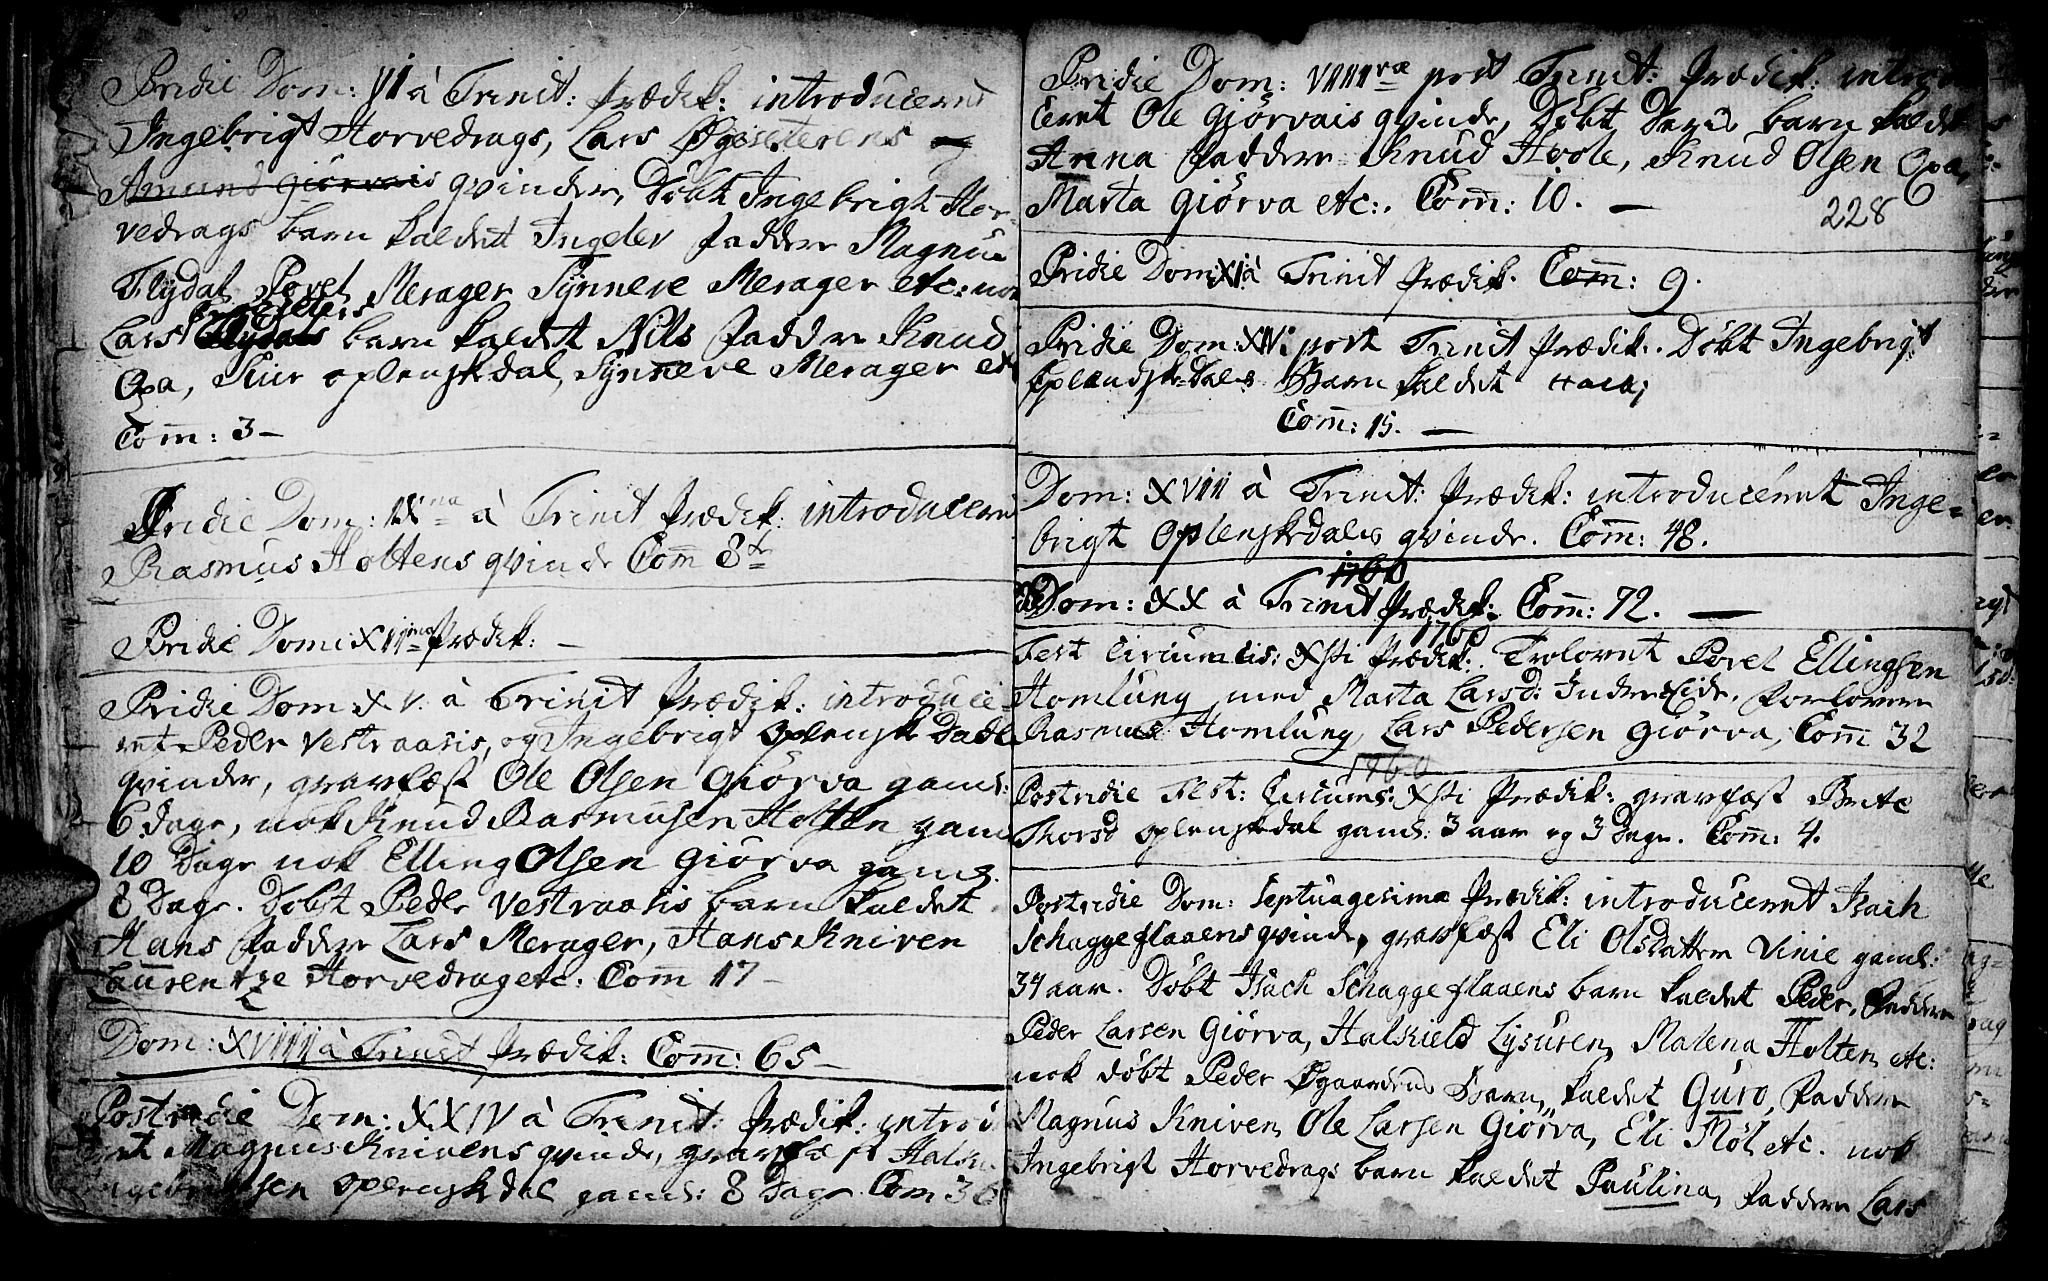 Pridie Dom: VI à Trinit: prædik: introduceret
Ingebrigt Horvedrags, Lars Øgseterens
Amund Giørvais qvinder, Døbt Ingebrigt Hor-
vedrags barn kaldet Ingelev fadder Magnus
Flydal Povel Merager Synneve Merager etc: nok
Lars Flydals barn kaldet Nils fadder Knud
Oxa, Siur oplenskdal, Synneve Merager etc
Com̄: 3 –
Pridie Dom: IXna à Trinit prædik: introduceret
Rasmus Holtens qvinde Com̄ 8
Pridie Dom: XIIma prædik: –
Pridie Dom XV. à Trinit prædik: introduce-
ret Peder Vestraasis, og Ingebrigt oplensk Dals
qvinder, gravfæst Ole Olsen Giørva gaml:
6 dage, nok Knud Rasmusen Holten gaml
10 Dage nok Elling Olsen Giørva gaml.
8 Dage. Døbt Peder Vestraasis barn kaldet
Hans fadder Lars Merager, Hans Kniven
Laurentze Horvedrag etc. Com̄ 17 –
Dom: XVIIII à Trinit prædik: Com̄: 65 –
Postridie Dom: XXIV à Trinit: prædik: introd
ret Magnus Knivens qvinde, gravfæst Halsn
oplenskdal gaml: 8 Dage Com 36
Pridie Dom: VIIIIra post Trinit: prædik: introdu
ceret Ole Giørvais qvinde, Døbt Deris barn kaldet
Anna fadder Knud Hoole, Knud Olsen Oxa,
Marta Giörva etc:. Com̄: 10. –
228
Pridie Dom XI à Trinit prædik. Com̄: 9.
Pridie Dom: XIV: post Trinit prædik:. Døbt Ingebrigt
Oplendsk-Dals Barn kaldet
Com̄: 15. –
Dom: XVIII à Trinit: prædik: introduceret Inge-
brigt Oplenskdals qvinde. Com̄: 48.
1760
Dom: XX à Trinit prædik: Com̄: 72. –
1760
Fest Circumcis: Xsti prædik:. Trolovet Povel Ellingsen
Homlung med Marta Larsd: IndreEide. forlover
Rasmus Homlung, Lars Pedersen Giörva, Com̄ 32
1760
Postridie Fest: Circums: Xsti prædik: gravfæst Brite
Thorsd oplenskdal gaml: 3 aar og 3 Dage. Com̄: 4.
Postridie Dom: Septuagesimæ prædik: introduceret Isach
Schaggeflaaens qvinde, gravfæst Eli Olsdatter Vinie gaml:
34 aar. Döbt Isach Schaggeflaaens barn kaldet Peder, fadder
Peder Larsen Giörva, Halskield Lysuren, Malena Holten etc:
nok döbt Peder Øgaardens Barn, kaldet Guro, fadder
Magnus Kniven, Ole Larsen Giörva, Eli Möl etc. nok
Ingebrigt Horvedrags barn kaldet Paulina, fadder Lars